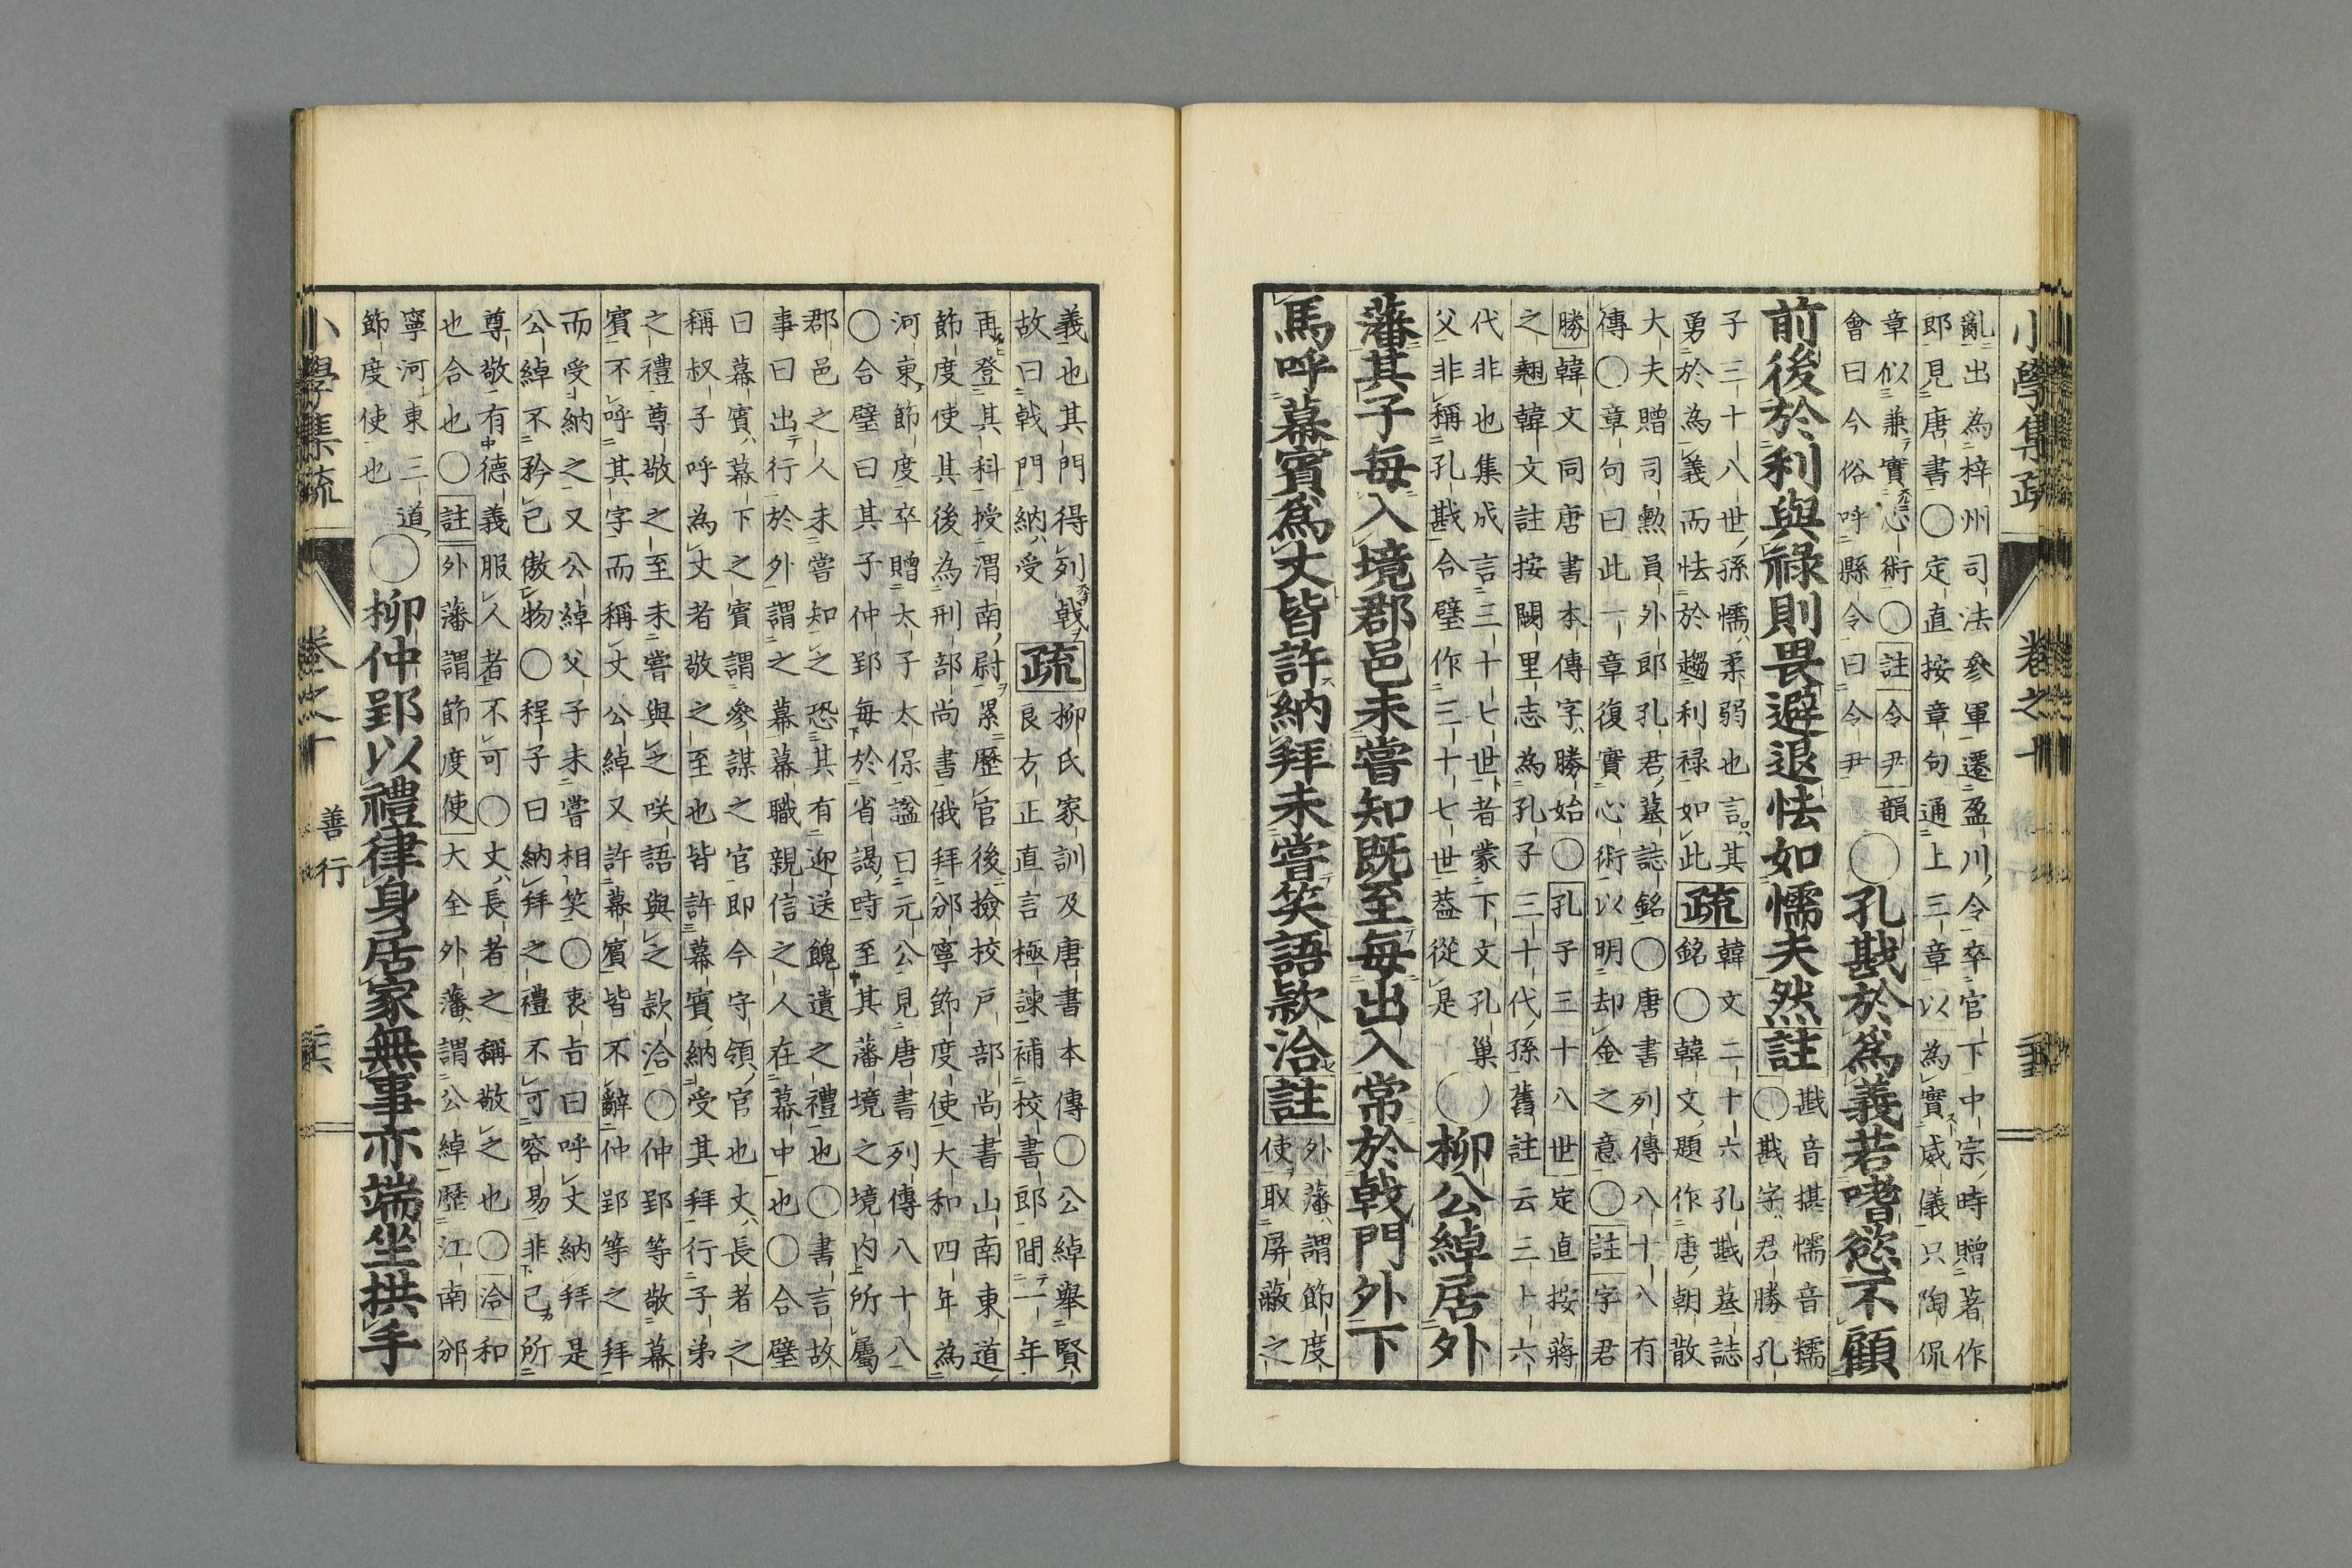 小學集疏 卷之十
亂出為梓州司法參軍遷盈川令卒官下中宗時贈著作
郎見唐書〇定直按章句通上三章以為實威儀只陶侃
章似兼實心術〇註令尹韻
會曰今俗呼縣令曰令尹
〇孔戡於為義若嗜慾不顧
前後於利與祿則畏避退怯如懦夫然註
戡音堪懦音糯
〇戡字君勝孔
子三十八世孫懦柔弱也言其
勇於為義而怯於趨利祿如此
疏
韓文二十六孔戡墓誌
銘〇韓文題作唐朝散
大夫贈司勲員外郎孔君墓誌銘〇唐書列傳八十八有
傳〇章句曰此一章復實心術以明却金之意〇註字君
勝韓文同唐書本傳字勝始〇孔子三十八世定直按蔣
之翹韓文註按闕里志為孔子三十代孫舊註云三十六
代非也集成言三十七世者蒙下文孔巢
父非稱孔戡令璧作三十七世葢從是
〇柳公綽居外
藩其子每入境郡邑未嘗知既至每出入常於戟門外下
馬呼幕賓為丈皆許納拜未嘗笑語款洽註
外藩謂節度
使取屏蔽之
義也其門得列戟
故曰戟門納受
疏
柳氏家訓及唐書本傳〇公綽舉賢
良方正直言極諫補校書郎間一年
再登其科授渭南尉累歷官後撿挍戸部尚書山南東道
節度使其後為刑部尚書俄拜邠寧節度使大和四年為
河東節度卒贈太子太保諡曰元公見唐書列傳八十八
〇合璧曰其子仲郢每於省謁時至其藩境之境内所屬
郡邑之人未嘗知之恐其有迎送餽遺之禮也〇書言故
事曰出行於外謂之幕幕職親信之人在幕中也〇合璧
曰幕賓幕下之賓謂參謀之官即今守領官也丈長者之
稱叔子呼為丈者敬之至也皆許幕賓納受其拜行子弟
之禮尊敬之至未嘗與之咲語與之款洽〇仲郢等敬幕
賓不呼其字而稱丈公綽又許幕賓皆不辭仲郢等之拜
而受納之又公綽父子未嘗相笑〇衷旨曰呼丈納拜是
公綽不矜己傲物〇程子曰納拜之禮不可容易非己所
尊敬有德義服人者不可〇丈長者之稱敬之也〇洽和
也合也〇註外藩謂節度使大全外藩謂公綽歷江南邠
寧河東三道
節度使也
〇柳仲郢以禮律身居家無事亦端坐拱手
小學集疏 卷之十 善行 二六